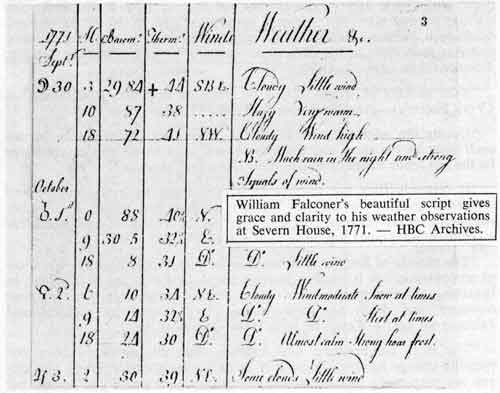 3
1771 H. Barom.r Therm.r Winds Weather &c.
Sept.r
30 3 29 84 + 44 SBE Cloudy Little wind
10 87 38 ..... Hazy Very warm
18 72 41 NW. Cloudy Wind high
NB. Much rain in the night and strong
October Squals of wind.
William Falconer's beautiful script gives
grace and clarity to his weather observations
at Severn House, 1771. — HBC Archives.
1. 0 88 40½ N.
9 30 5 32½ E.
18 8 31 D.o D.o Little wind
2. 10 34 NE. Cloudy Wind moderate Snow at times
9 14 32½ E D.o D.o Sleet at times
18 24 30 D.o D.o Almost calm Strong hoar frost.
3. 2 30 39 NE. Some clouds Little wind